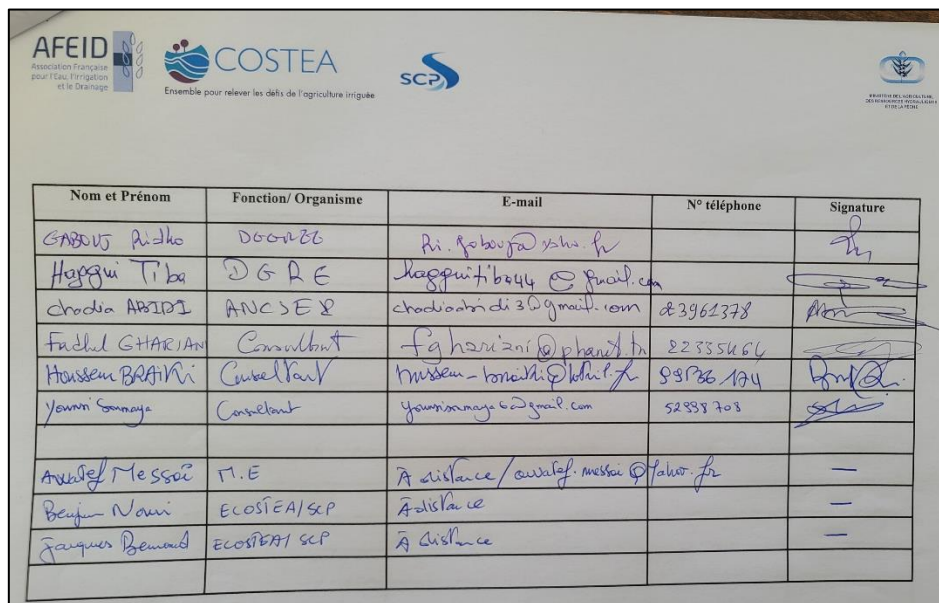 AFEID
Association Française
pour l'Eau, l'Irrigation
et le Drainage
COSTEA
Ensemble pour relever les défis de l'agriculture irriguée
SCP
MINISTERE DE L'AGRICULTURE,
DES RESSOURCES HYDRAULIQUES
ET DE LA PÊCHE
Nom et Prénom Fonction/ Organisme E-mail N° téléphone Signature
GABOUJ Ridha
Haggui Tiba DGRE hagguitiba44@gmail.com
Chadia ABIDI chadiaabidi3@gmail.com 23961378
Fadhel GHARIANI Consultant fghariani@planet.tn
Houssem BRAIKI Consultant
Younsi Soumaya Consultant 52998708
Awatef Messai M.E À distance / awatef.messai@yahoo.fr —
Nouri ECOSTEA/SCP À distance —
Jacques ECOSTEA/ SCP À distance —